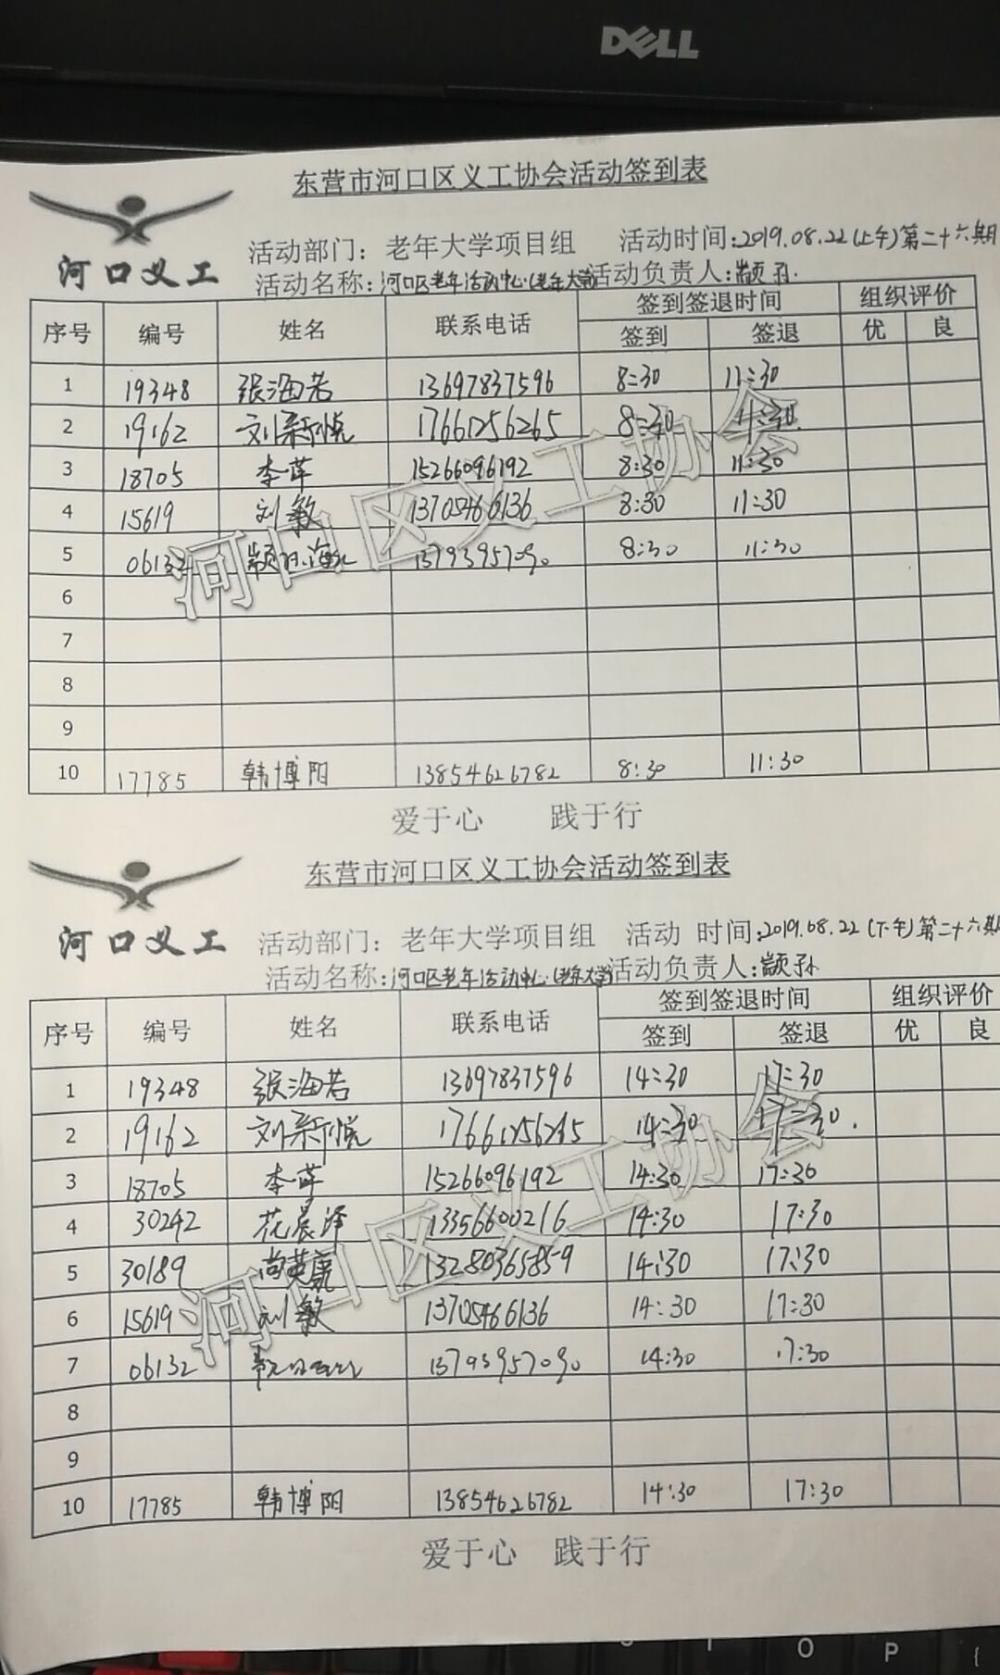 DELL
东营市河口区义工协会活动签到表
河口义工
活动部门：老年大学项目组 活动时间：2019.08.22(上午)第二十六期
活动名称：河口区老年活动中心(老年大学) 活动负责人：颛孙
序号 编号 姓名 联系电话 签到签退时间 组织评价
签到 签退 优 良
1 19348 张海若 13697837596 8:30 11:30
2 19162 刘新悦 17661256265 8:30 11:30
3 18705 李萍 15266096192 8:30 11:30
4 15619 刘敏 13705466136 8:30 11:30
5 06132 13793957090 8:30 11:30
6
7
8
9
10 17785 韩博阳 13854626782 8:30 11:30
爱于心 践于行
河口区义工协会
东营市河口区义工协会活动签到表
河口义工
活动部门：老年大学项目组 活动 时间：2019.08.22(下午)第二十六期
活动名称：河口区老年活动中心(老年大学) 活动负责人：颛孙
序号 编号 姓名 联系电话 签到签退时间 组织评价
签到 签退 优 良
1 19348 张海若 13697837596 14:30 17:30
2 19162 刘新悦 17661256265 14:30 17:30
3 18705 李萍 15266096192 14:30 17:30
4 30242 花晨泽 13356600216 14:30 17:30
5 30189 尚英豪 13280365859 14:30 17:30
6 15619 刘敏 13705466136 14:30 17:30
7 06132 13793957090 14:30 17:30
8
9
10 17785 韩博阳 13854626782 14:30 17:30
爱于心 践于行
河口区义工协会
I O P {